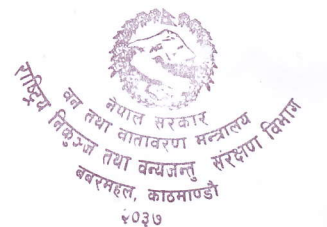 नेपाल सरकार
वन तथा वातावरण मन्त्रालय
राष्ट्रिय निकुञ्ज तथा वन्यजन्तु संरक्षण विभाग
बबरमहल, काठमाण्डौ
२०३७